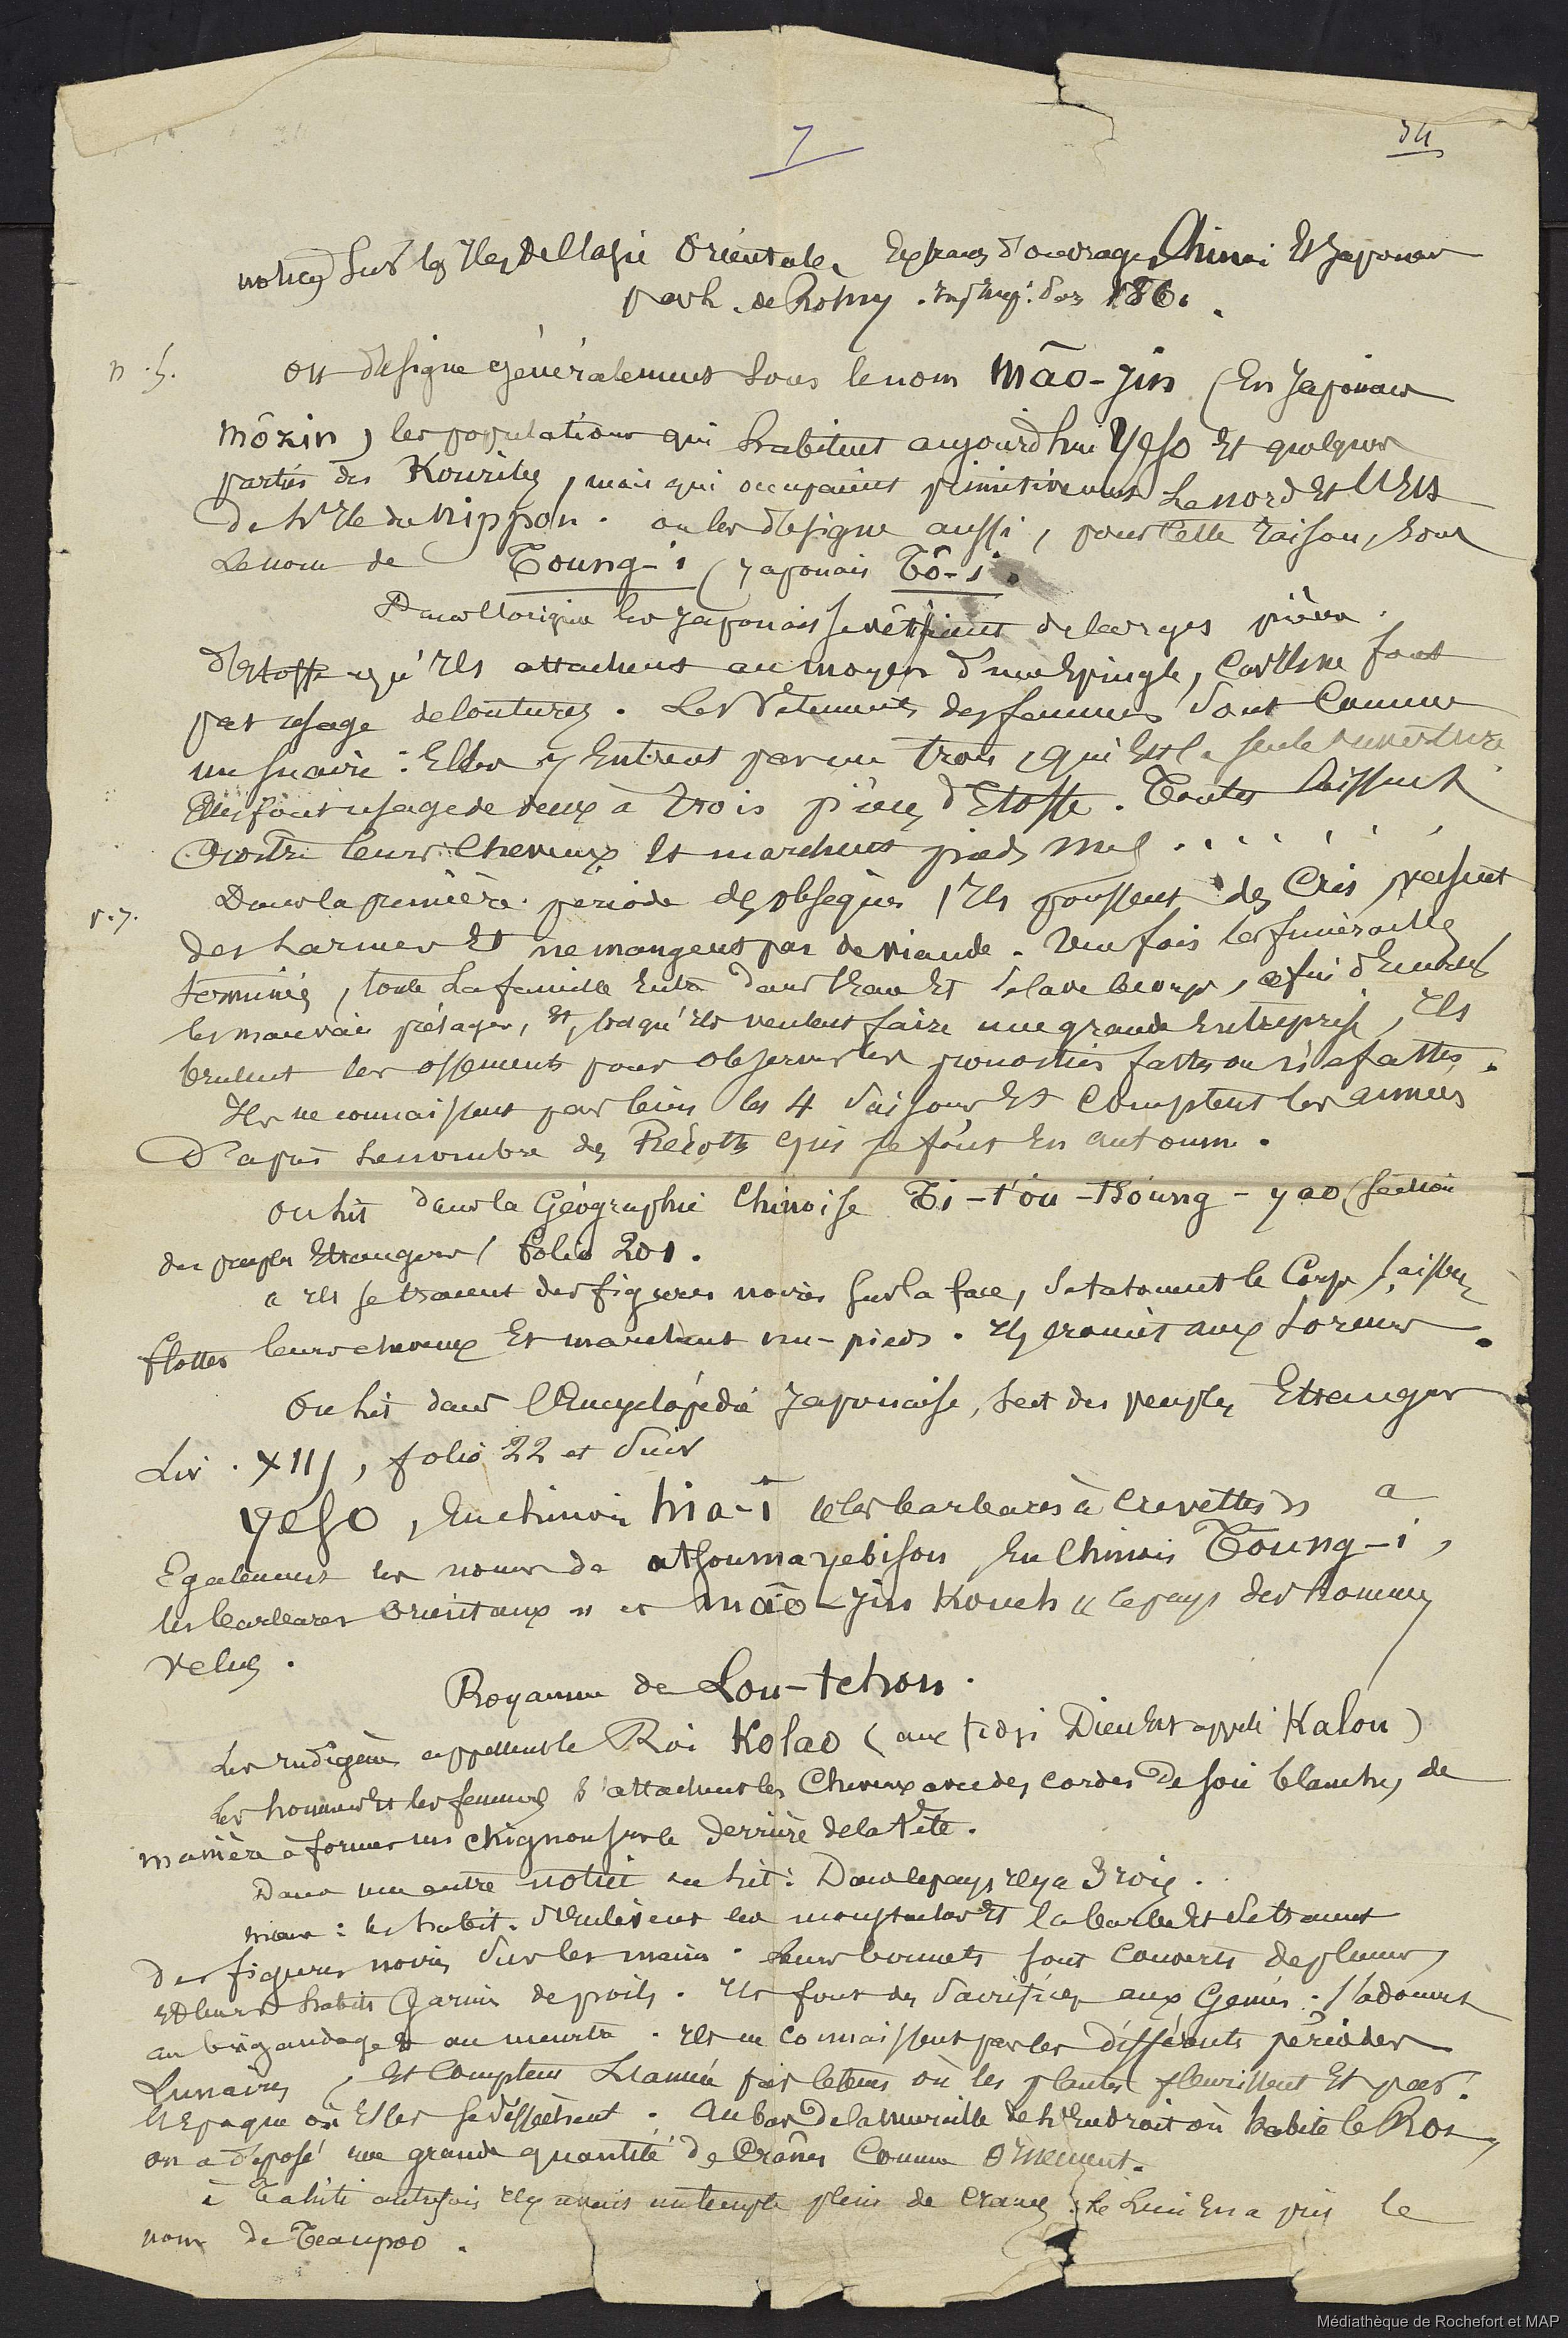 7
34
notices sur les Iles de l'Asie Orientale, Extraits d'ouvrages Chinois Et Japonais
par L. de Rosny . 1861.
On désigne généralement sous le nom Mâo-jin (En Japonais
Môzin) les populations qui habitent aujourd'hui Yéso Et quelques
parties des Kouriles, mais qui occupaient primitivement Le nord Et l'Est
De L'Ile du Nippon. on les désigne aussi, pour Cette raison, sous
Le nom de Toung-i (Japonais Tô-i.
Dans l'origine les Japonais se vêtaient de larges pièces
d'Etoffe qu'ils attachent au moyen d'une Epingle, Car Ils ne font
pas usage de coutures. Les Vêtements des femmes sont Comme
un suaire : Elles y Entrent par un trou, qui Est la seule ouverture
Elles font usage de deux à trois pièces d'Etoffe. Toutes laissent
Croître leurs Cheveux Et marchent pieds nus . . . . . .
p.7. Dans la première période des obsèques, Ils poussent des Cris, versent
des Larmes Et ne mangent pas de viande. Une fois les funérailles
terminées, toute La famille Entre dans l'Eau Et se lave le corps, afin d'Enlever
les mauvais présages, Et, lorsqu'Ils veulent faire une grande Entreprise, Ils
brulent les ossements pour observer les pronostics fastes ou néfastes.
Ils ne connaissent pas bien les 4 saisons Et Comptent les années
D'après Le nombre des Récoltes qui se font En automne.
On lit dans la Géographie Chinoise Ti-t'ou-tsoung-yao (section
des peuples Etrangers) folio 201.
« Ils se tracent des figures noires sur la face, se tatouent le Corps, laissent
flotter leurs cheveux Et marchent nu-pieds. Ils croient aux Sorciers.
On lit dans l'Encyclopédie Japonaise, sect des peuples Etrangers
Liv. XIII, folio 22 et suiv
Yéso, En chinois Hia-i « les barbares à Crevettes » a
Egalement les noms de atsoumayebisou En Chinois Toung-i,
les barbares Orientaux » et Mâo-jin Koueh « le pays des hommes
velus.
Royaume de Lou-tchou.
Les Indigènes appellent le Roi Kolao (aux fidji Dieu Est appelé Kalou)
Les hommes Et les femmes s'attachent les Cheveux avec des cordes De soie blanche, de
manière à former un chignon sur le derrière de la tête.
Dans une autre notice on lit : Dans le pays Il y a 3 rois.
les habit. s'Enlèvent les moustaches Et la barbe Et se tracent
des figures noires sur les mains. Leurs bonnets sont Couverts de plumes,
Et leurs habits Garnis de poils. Ils font des Sacrifices aux Génies. s'adonnent
au brigandage Et au meurtre. Ils ne connaissent pas les différents périodes
Lunaires, Et Comptent L'année par le tems où les plantes fleurissent Et par
l'Epoque où Elles se dessèchent. Au bas de la muraille de L'Endroit où habite le Roi,
on a déposé une grande quantité de Crânes Comme Ornement.
à Tahiti autrefois Il y avait un temple plein de Crânes. Le Lieu En a pris le
nom de Teaupoo.
Médiathèque de Rochefort et MAP